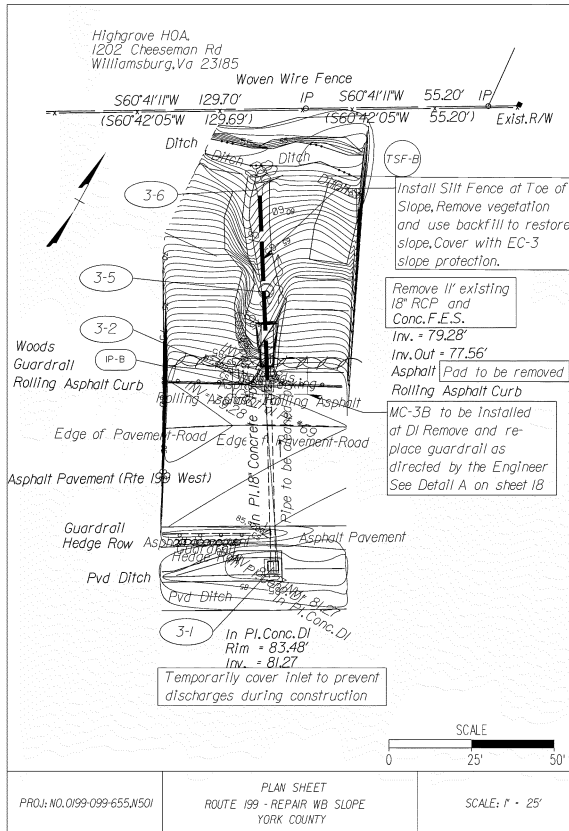 Highgrove HOA.
1202 Cheeseman Rd
Williamsburg,Va 23185
Woven Wire Fence
S60°41'11"W 129.70' IP S60°41'11"W 55.20' IP
(S60°42'05"W 129.69') (S60°42'05"W 55.20') Exist.R/W
Ditch
Ditch
Ditch
TSF-B
3-6
Install Silt Fence at Toe of
Slope,Remove vegetation
and use backfill to restore
slope,Cover with EC-3
slope protection.
3-5
Remove 11' existing
18" RCP and
Conc.F.E.S.
Inv. = 79.28'
Inv.Out = 77.56'
3-2
Woods
IP-B
Guardrail
Asphalt Pad to be removed
Rolling Asphalt Curb
Rolling Asphalt
Rolling Asphalt
Rolling Asphalt Curb
MC-3B to be installed
at DI Remove and re-
place guardrail as
directed by the Engineer
See Detail A on sheet 18
Edge of Pavement-Road
Edge of Pavement-Road
In Pl.18" Concrete
Pipe to be cleaned
Asphalt Pavement (Rte 199 West)
Guardrail
Hedge Row
Asphalt Pavement
Hedge Row
Pvd Ditch
Pvd Ditch
In Pl.Conc.DI
3-1
In Pl.Conc.DI
Rim = 83.48'
Inv. = 81.27
Temporarily cover inlet to prevent
discharges during construction
SCALE
0 25' 50'
PROJ: NO.0199-099-655,N501
PLAN SHEET
ROUTE 199 - REPAIR WB SLOPE
YORK COUNTY
SCALE: 1" = 25'